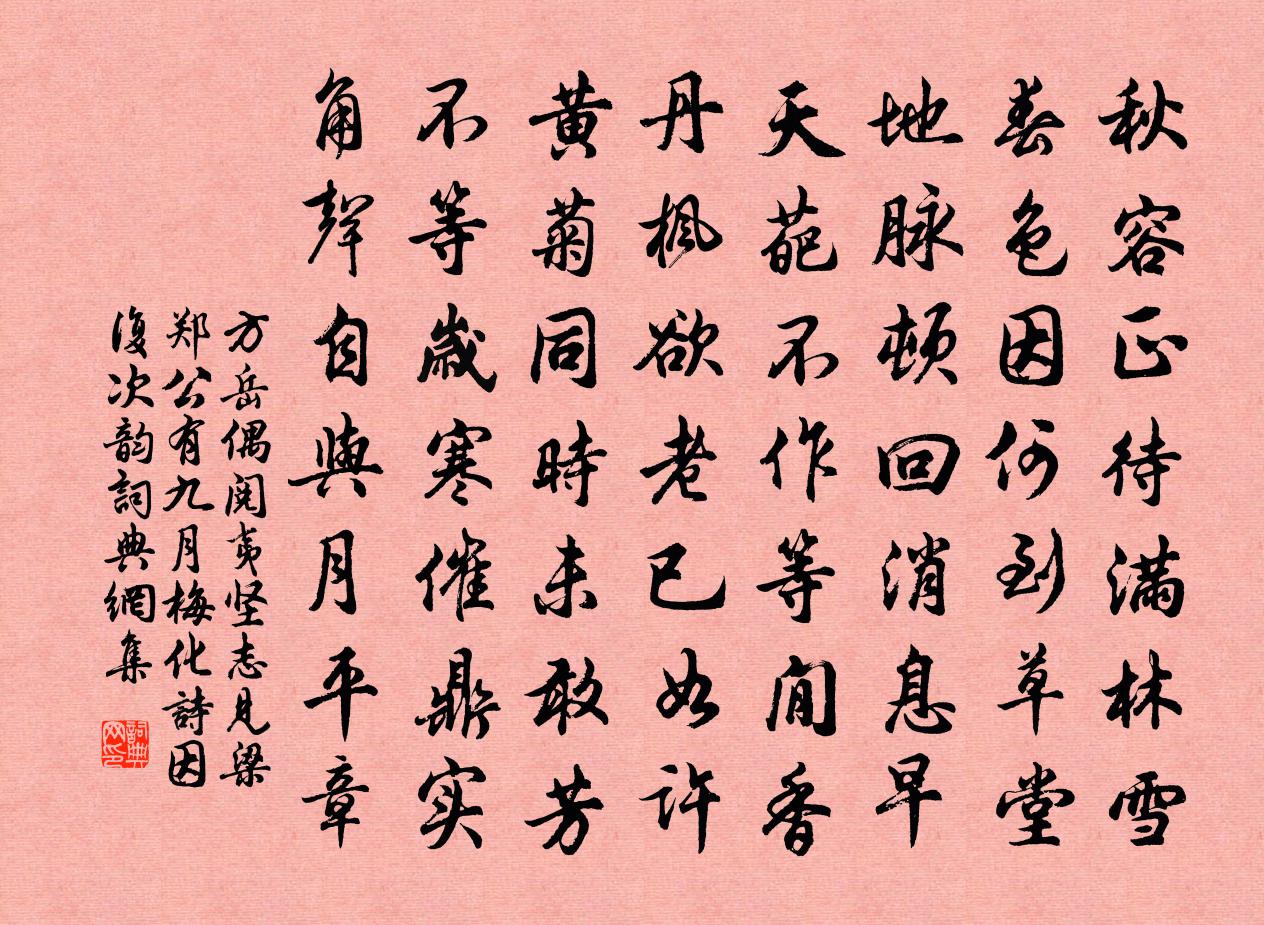 秋容正待满林雪
春色因何到草堂
地脉顿回消息早
天葩不作等闲香
丹枫欲老已如许
黄菊同時未敢芳
不等歲寒催鼎实
角聲自與月平章
方岳偶閱夷坚志見梁
郑公有九月梅花詩因
復次韵詞典網集
詞典网印